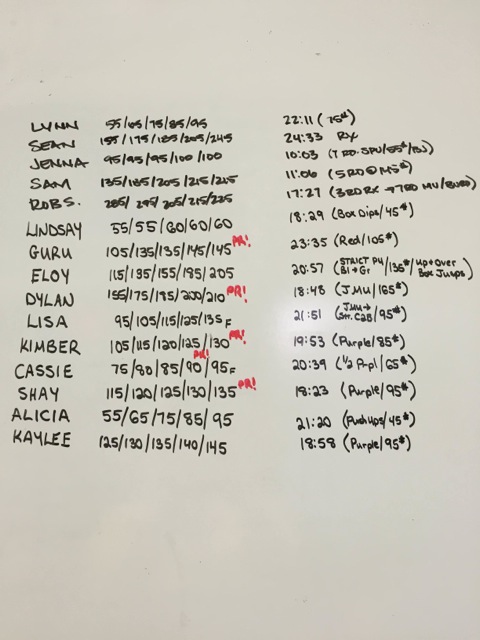 LYNN 55/65/75/85/95 22:11 (75#)
SEAN 155/175/185/205/245 24:33 RX
JENNA 95/95/95/100/100 10:03 (7 RD. /55#/
SAM 135/185/205/215/225 11:06 (5 RD @
ROB S. 215/225 17:27 (3RD RX → 7RD MU/
LINDSAY 55/55/60/60/60 18:29 (Box Dips/45#)
GURU 105/135/135/145/145 PR! 23:35 (Red/105#)
ELOY 115/135/155/185/205 20:57 (STRICT PU Bl+Gr /135#/ Up+Over Box Jumps)
DYLAN 155/175/185/200/210 PR! 18:48 (J.MU/165#)
LISA 95/105/115/125/135 F 21:51 (J.MU→ Str. C2B /95#)
KIMBER 105/115/120/125/130 PR! 19:53 (Purple/85#)
CASSIE 75/80/85/90 PR!/95 F 20:39 (1/2 Prpl/65#)
SHAY 115/120/125/130/135 PR! 18:23 (Purple/95#)
ALICIA 55/65/75/85/95 21:20 (Pushups/45#)
KAYLEE 125/130/135/140/145 18:58 (Purple/95#)